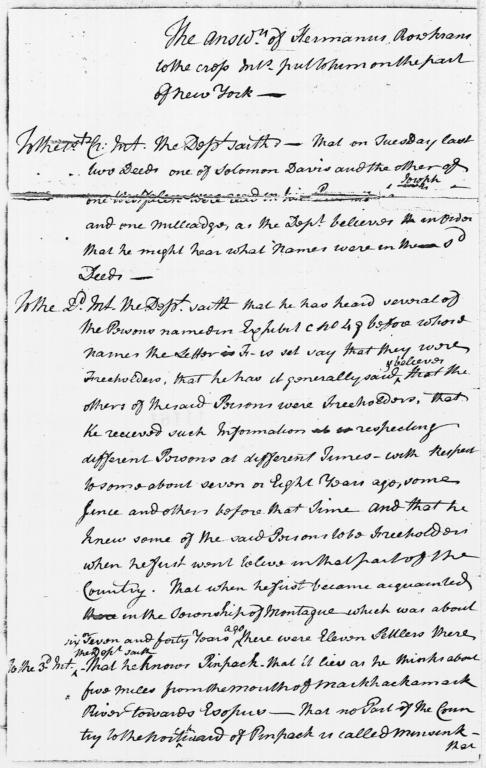 The answrs of Hermanus Rosekrans
to the cross Ints. put to him on the part
of new York —
To the 1st Cr: Int. The Dept saith — That on Tuesday last
two Deeds one of Solomon Davis and the other of
Joseph
one were read in
and one Milliadge, as the Dept. believes in Order
that he might hear what Names were in the sd
Deeds —
To the 2d. Int. The Dept. saith that he has heard several of
the Persons named in Exhibit C No 49 before whose
Names the Letter F- is set say that they were
Freeholders, that he has it generally said & believes that the
others of the said Persons were Freeholders, that
he recieved such Information respecting
different Persons at different Times — with Respect
to some about seven or Eight Years ago, some
since and others before that Time and that he
knew some of the said Persons to be Freeholders
when he first went to live in that part of the
Country. That when he first became acquainted
in the Township of Montague which was about
six Seven and forty Years ago, there were Eleven Settlers there
To the 3d. Int. the Dept saith That he knows Pinpack - that it lies as he thinks about
five miles from the mouth of Mackhackamack
River towards Esopus — That no Part of the Coun
try to the Northward of Pinpack is called Minisink —
that